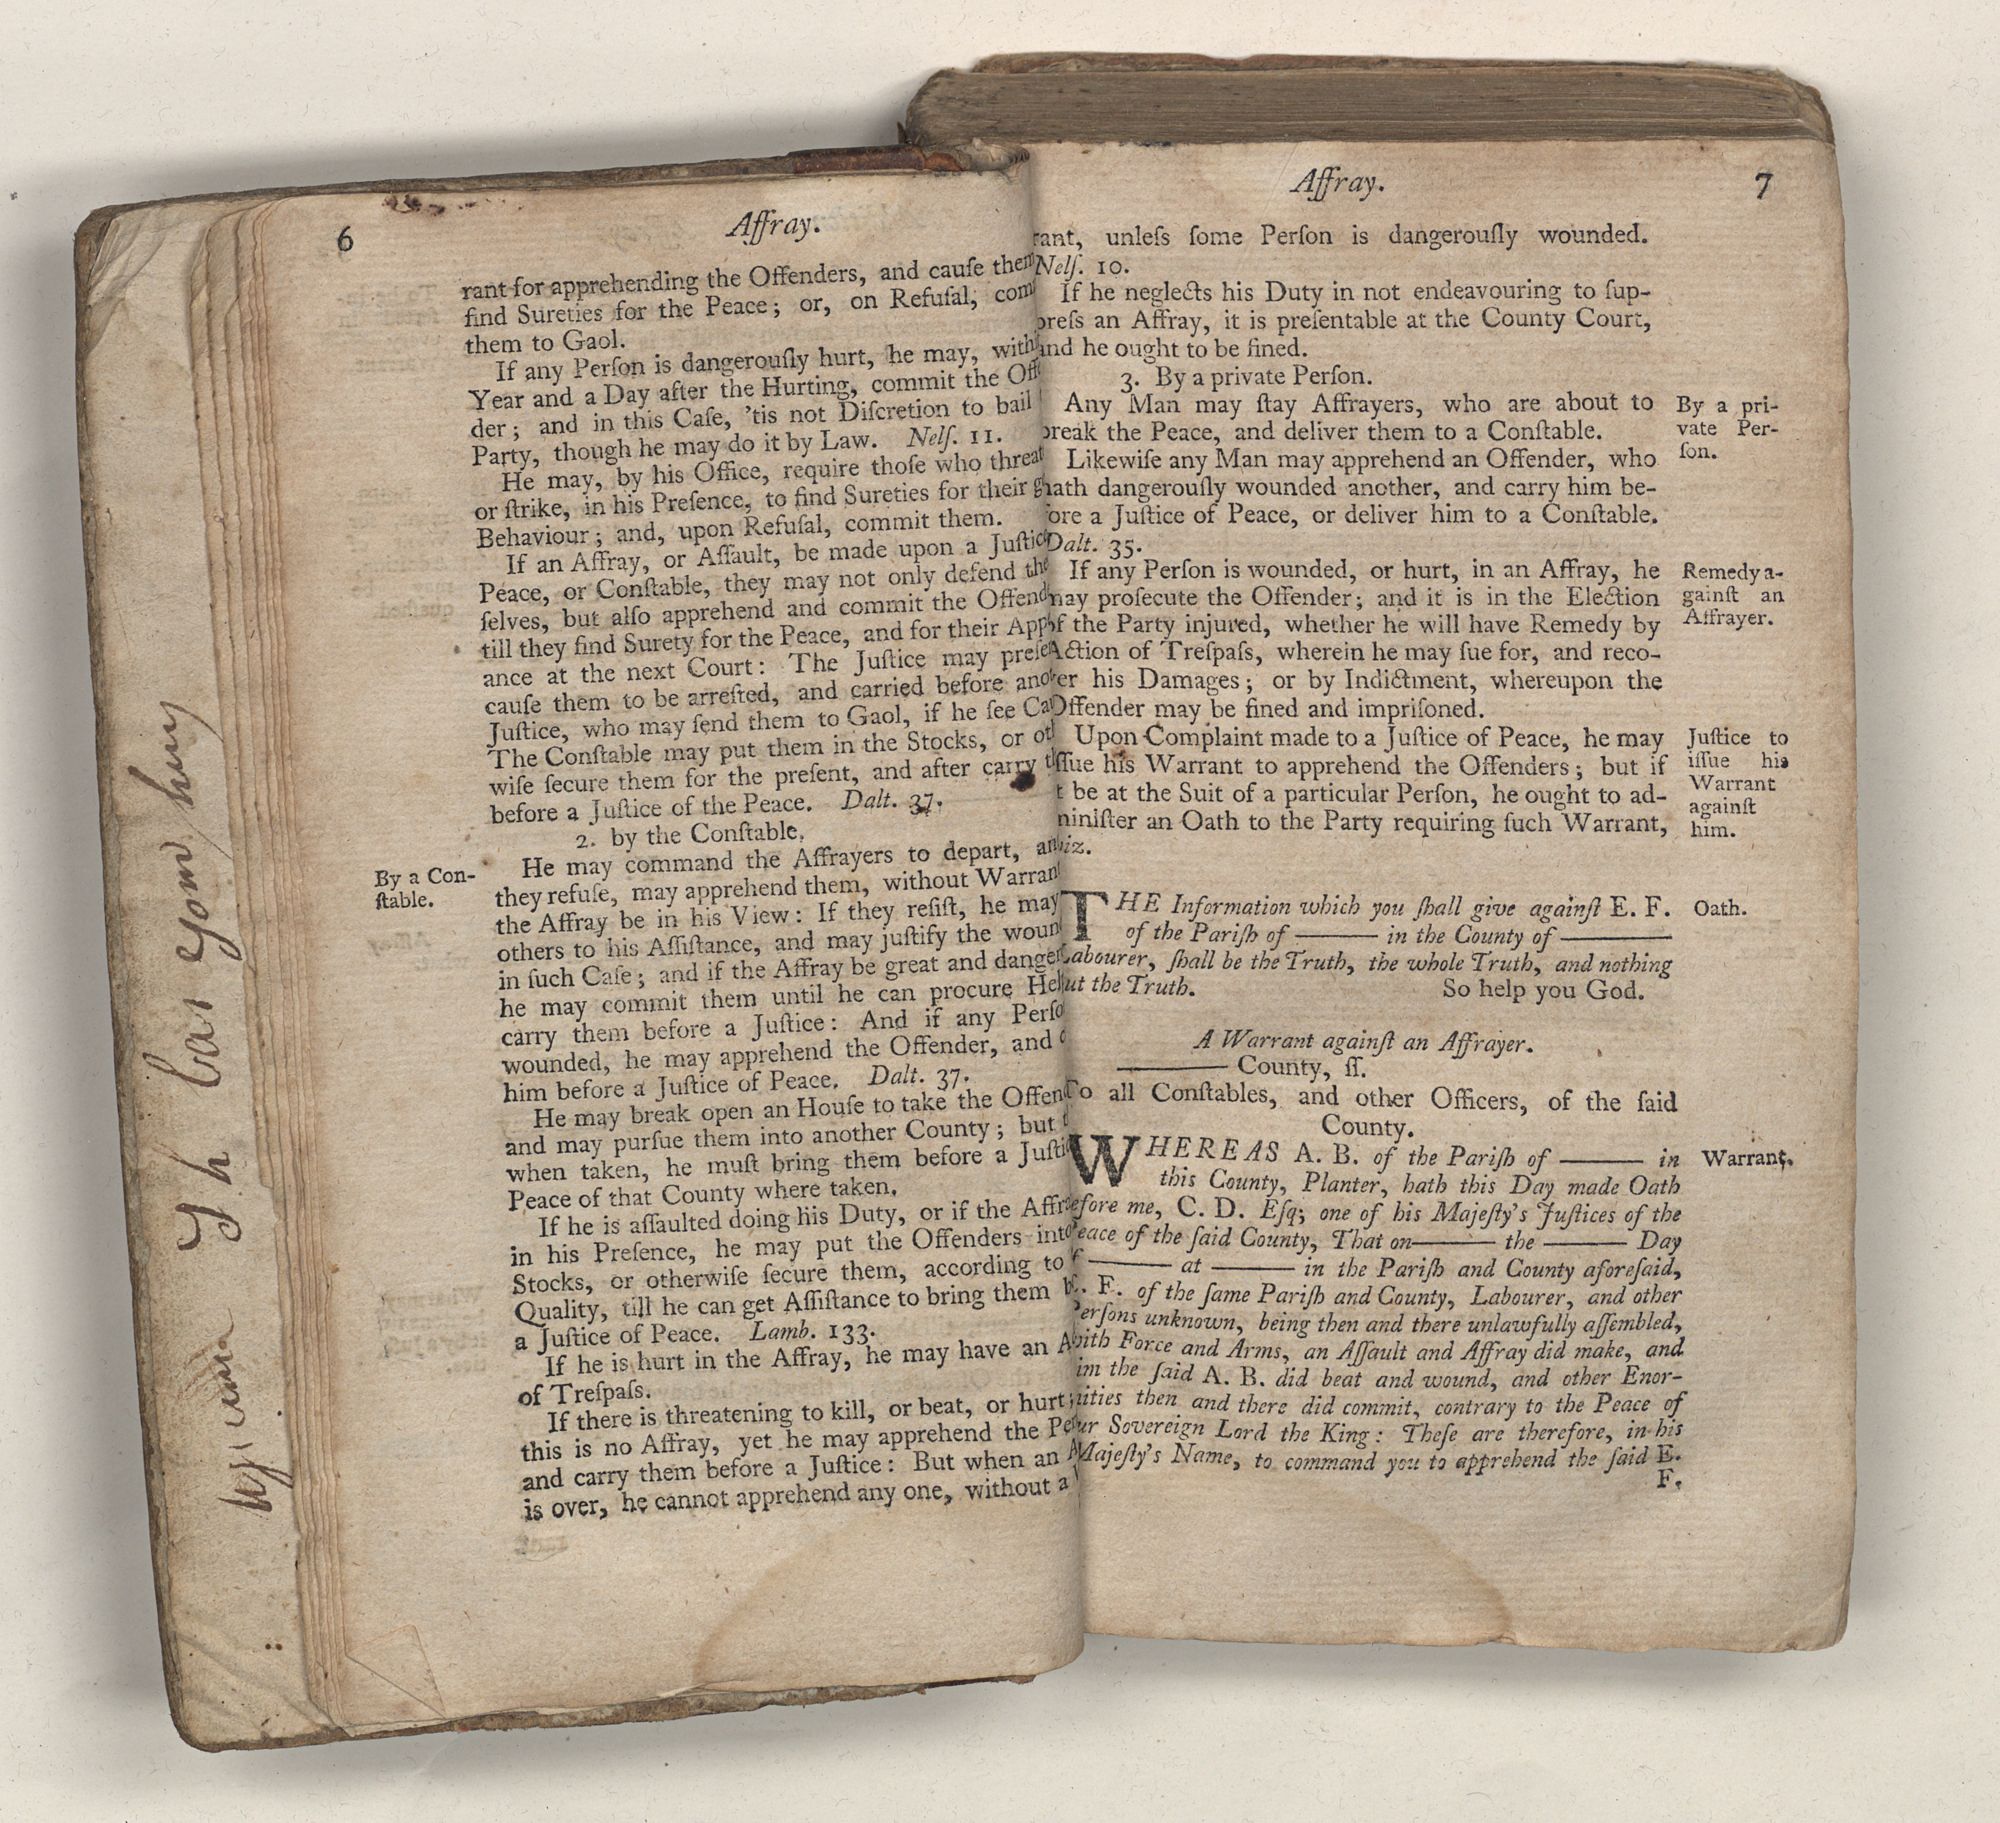 6
Affray.
rant for apprehending the Offenders, and cauſe them
find Sureties for the Peace; or, on Refuſal, com
them to Gaol.
If any Perſon is dangerouſly hurt, he may, with
Year and a Day after the Hurting, commit the Off
der; and in this Caſe, 'tis not Diſcretion to bail
Party, though he may do it by Law. Nelſ. 11.
He may, by his Office, require thoſe who threat
or ſtrike, in his Preſence, to find Sureties for their g
Behaviour; and, upon Refuſal, commit them.
If an Affray, or Aſſault, be made upon a Juſtice
Peace, or Conſtable, they may not only defend the
ſelves, but alſo apprehend and commit the Offend
till they find Surety for the Peace, and for their App
ance at the next Court: The Juſtice may preſe
cauſe them to be arreſted, and carried before ano
Juſtice, who may ſend them to Gaol, if he ſee Ca
The Conſtable may put them in the Stocks, or ot
wiſe ſecure them for the preſent, and after carry t
before a Juſtice of the Peace. Dalt. 37.
2. by the Conſtable.
By a Con-
ſtable.
He may command the Affrayers to depart, an
they refuſe, may apprehend them, without Warran
the Affray be in his View: If they reſiſt, he may
others to his Aſſiſtance, and may juſtify the woun
in ſuch Caſe; and if the Affray be great and danger
he may commit them until he can procure Hel
carry them before a Juſtice: And if any Perſo
wounded, he may apprehend the Offender, and c
him before a Juſtice of Peace. Dalt. 37.
He may break open an Houſe to take the Offen
and may purſue them into another County; but t
when taken, he muſt bring them before a Juſti
Peace of that County where taken.
If he is aſſaulted doing his Duty, or if the Affr
in his Preſence, he may put the Offenders into
Stocks, or otherwiſe ſecure them, according to
Quality, till he can get Aſſiſtance to bring them b
a Juſtice of Peace. Lamb. 133.
If he is hurt in the Affray, he may have an A
of Treſpaſs.
If there is threatening to kill, or beat, or hurt;
this is no Affray, yet he may apprehend the Pe
and carry them before a Juſtice: But when an A
is over, he cannot apprehend any one, without a
Affray.
7
rant, unleſs ſome Perſon is dangerouſly wounded.
Nelſ. 10.
If he neglects his Duty in not endeavouring to ſup-
preſs an Affray, it is preſentable at the County Court,
and he ought to be fined.
3. By a private Perſon.
Any Man may ſtay Affrayers, who are about to
break the Peace, and deliver them to a Conſtable.
By a pri-
vate Per-
ſon.
Likewiſe any Man may apprehend an Offender, who
hath dangerouſly wounded another, and carry him be-
fore a Juſtice of Peace, or deliver him to a Conſtable.
Dalt. 35.
If any Perſon is wounded, or hurt, in an Affray, he
may proſecute the Offender; and it is in the Election
of the Party injured, whether he will have Remedy by
Action of Treſpaſs, wherein he may ſue for, and reco-
ver his Damages; or by Indictment, whereupon the
Offender may be fined and impriſoned.
Remedy a-
gainſt an
Affrayer.
Upon Complaint made to a Juſtice of Peace, he may
iſſue his Warrant to apprehend the Offenders; but if
t be at the Suit of a particular Perſon, he ought to ad-
miniſter an Oath to the Party requiring ſuch Warrant,
viz.
Juſtice to
iſſue his
Warrant
againſt
him.
THE Information which you ſhall give againſt E. F.
of the Pariſh of ——— in the County of ———
Labourer, ſhall be the Truth, the whole Truth, and nothing
but the Truth. So help you God.
Oath.
A Warrant againſt an Affrayer.
——— County, ſſ.
To all Conſtables, and other Officers, of the ſaid
County.
WHEREAS A. B. of the Pariſh of ——— in
this County, Planter, hath this Day made Oath
before me, C. D. Eſq; one of his Majeſty's Juſtices of the
Peace of the ſaid County, That on ——— the ——— Day
of ——— at ——— in the Pariſh and County aforeſaid,
E. F. of the ſame Pariſh and County, Labourer, and other
Perſons unknown, being then and there unlawfully aſſembled,
with Force and Arms, an Aſſault and Affray did make, and
him the ſaid A. B. did beat and wound, and other Enor-
mities then and there did commit, contrary to the Peace of
our Sovereign Lord the King: Theſe are therefore, in his
Majeſty's Name, to command you to apprehend the ſaid E.
F.
Warrant.